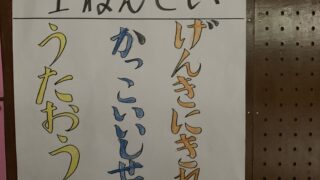 1ねんせい
げんきにきれ
かっこいいしせ
うたおう